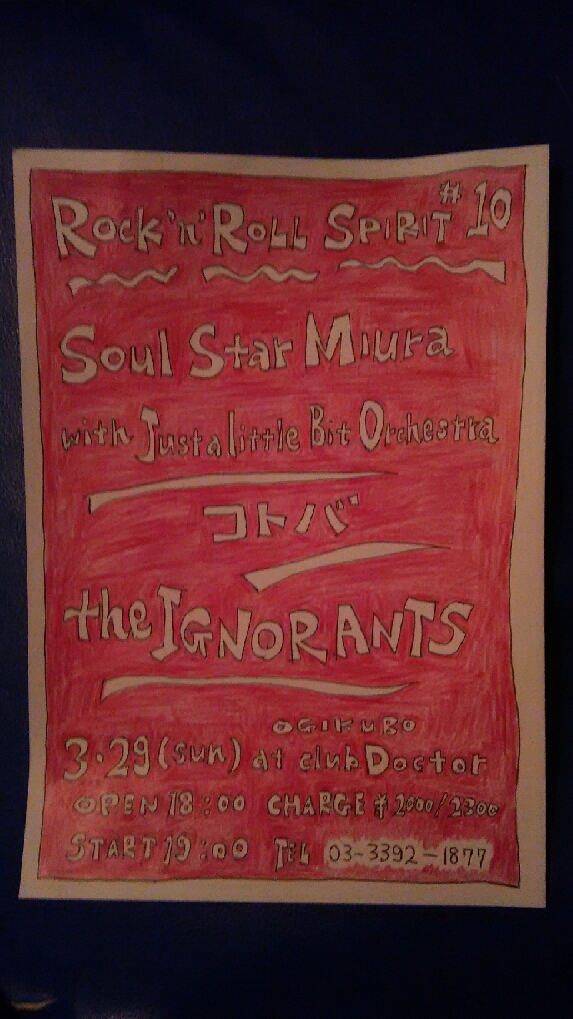 Rock 'n' Roll Spirit #10
Soul Star Miura
with Just a little Bit Orchestra
コトバ
the IGNORANTS
OGIKUBO
3・29(sun) at club Doctor
OPEN 18:00 CHARGE ¥2000/2300
START 19:00 TEL 03-3392-1877